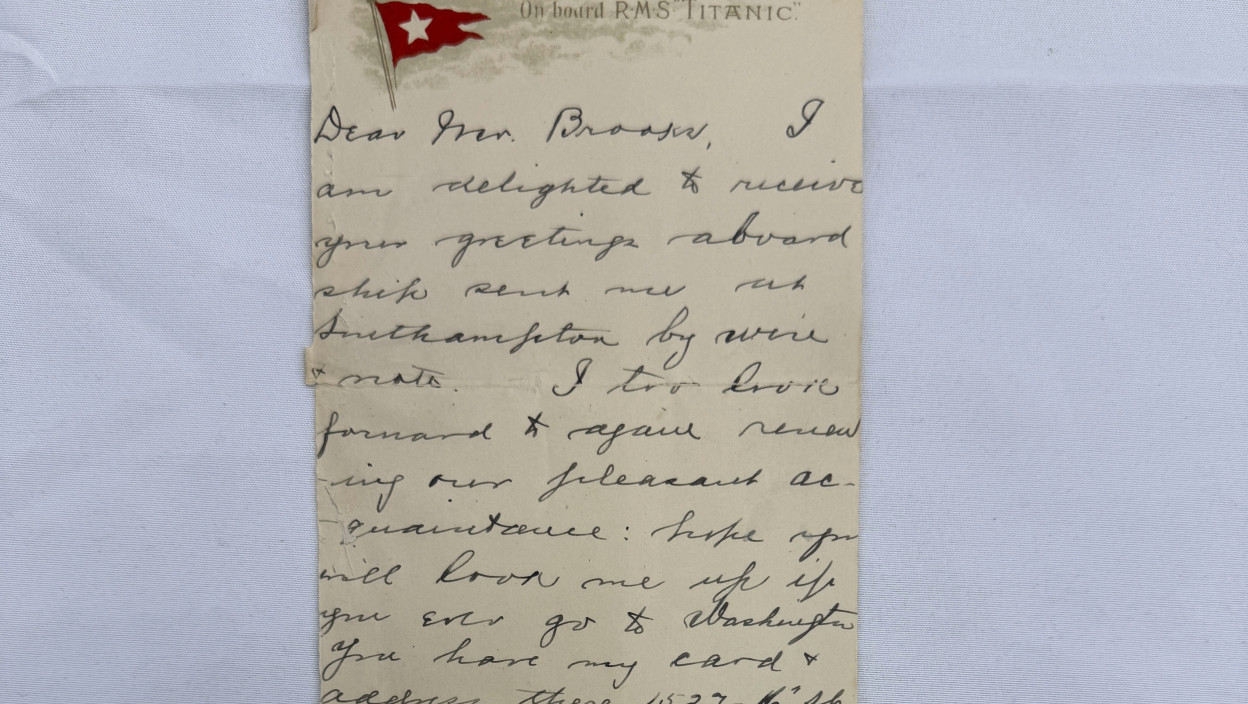 On board R·M·S "TITANIC."
Dear Mr. Brooks, I
am delighted to receive
your greetings aboard
ship sent me at
Southampton by wire
& note. I too look
forward to again renew
-ing our pleasant ac-
-quaintance: hope you
will look me up if
you ever go to Washington
You have my card &
address there 1527-